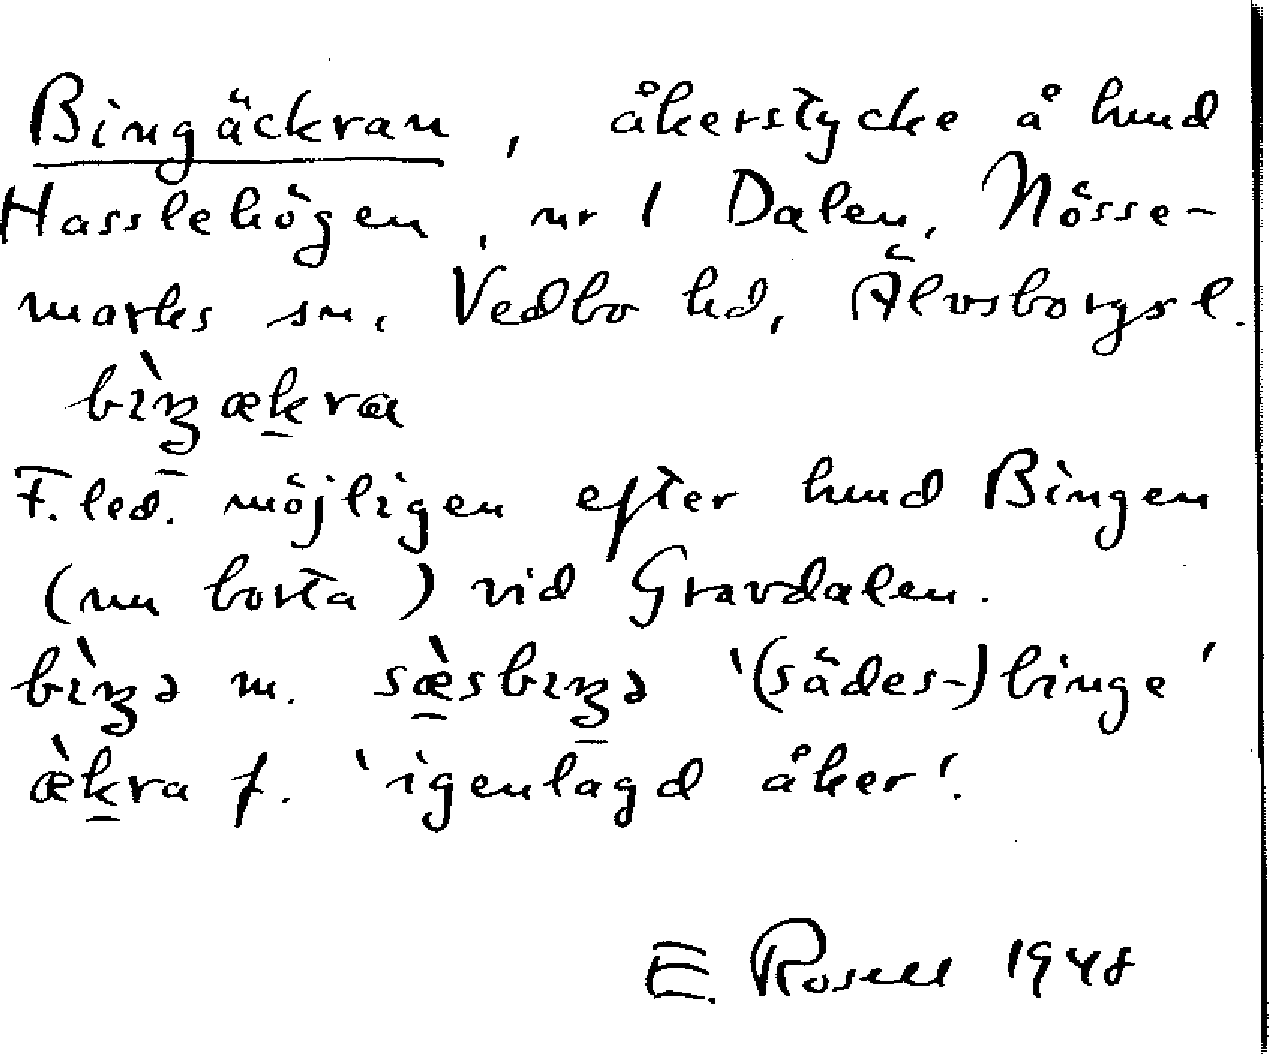 Bingäckran, åkerstycke å hmd
Hasslehögen, nr 1 Dalen, Nösse-
marks sn, Vedbo hd, Älvsborgs l.
bìŋæk̠ra
F. led. möjligen efter hmd Bingen
(nu borta) vid Gravdalen.
bìŋə m. sæ̠̀sbıŋə '(sädes-)binge'
æ̀k̠ra f. 'igenlagd åker'.
E. Rosell 1948